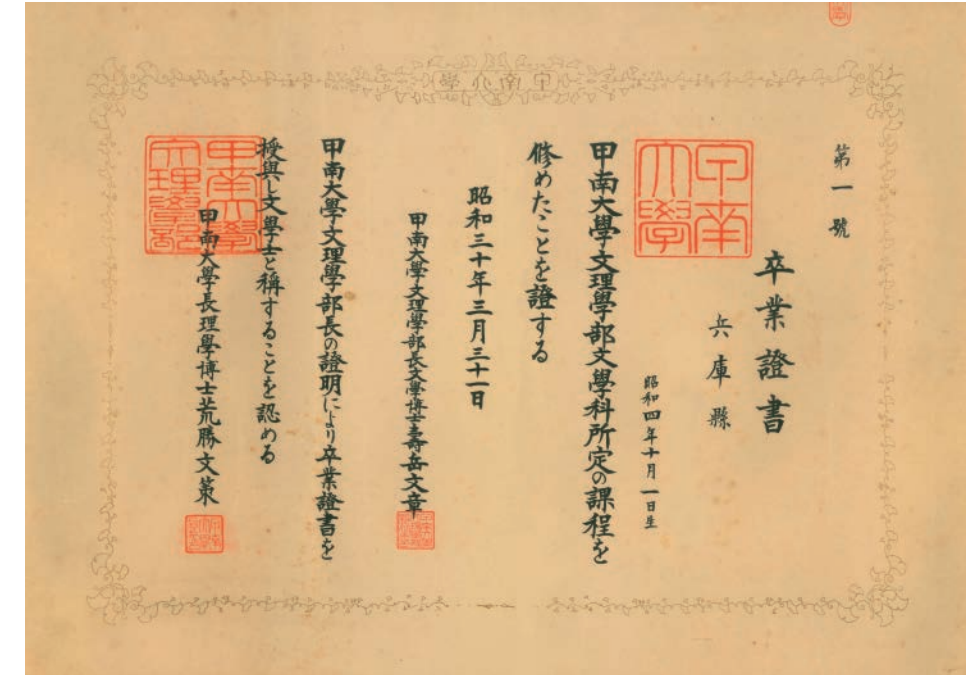 甲南大學
第一號
卒業證書
兵庫縣
昭和四年十月一日生
甲南大學文理學部文學科所定の課程を
修めたことを證する
昭和三十年三月三十一日
甲南大學文理學部長文學博士壽岳文章
甲南大學文理學部長の證明により卒業證書を
授與し文學士と稱することを認める
甲南大學長理學博士荒勝文策
甲南大學
甲南大學文理學部